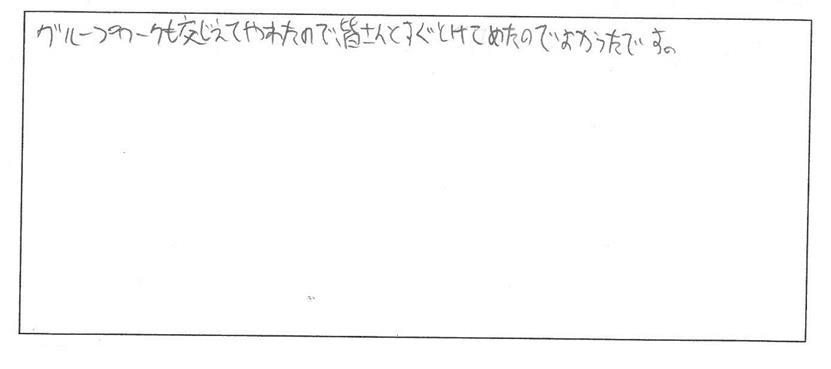 グループワークも交じえてやれたので、皆さんとすぐとけてめたのでよかったです。